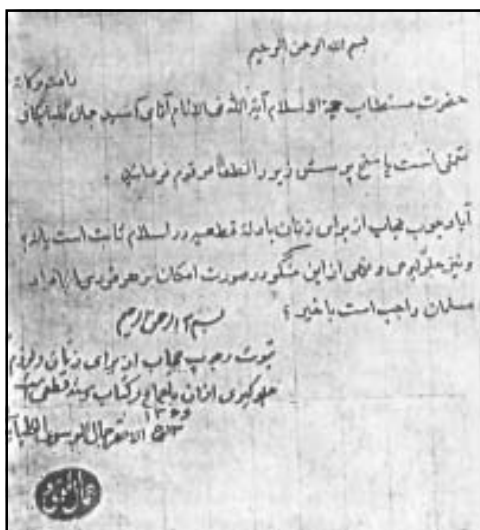 بسم الله الرحمن الرحیم
دامت برکاته
حضرت مستطاب حجة الاسلام آیة الله فی الانام آقای آسید جمال گلپایگانی
متمنی است پاسخ پرسش زیر را لطفاً مرقوم فرمائید.
آیا وجوب حجاب از برای زنان بادلهٔ قطعیه در اسلام ثابت است یا نه؟
و نیز جلوگیری و نهی از این منکر در صورت امکان بر هر فردی از افراد
مسلمان واجب است یا خیر؟
بسم الله الرحمن الرحیم
ثبوت وجوب حجاب از برای زنان و لزوم
جلوگیری از آن باجماع و کتاب و سنة قطعی است
الاحقر جمال الموسوی